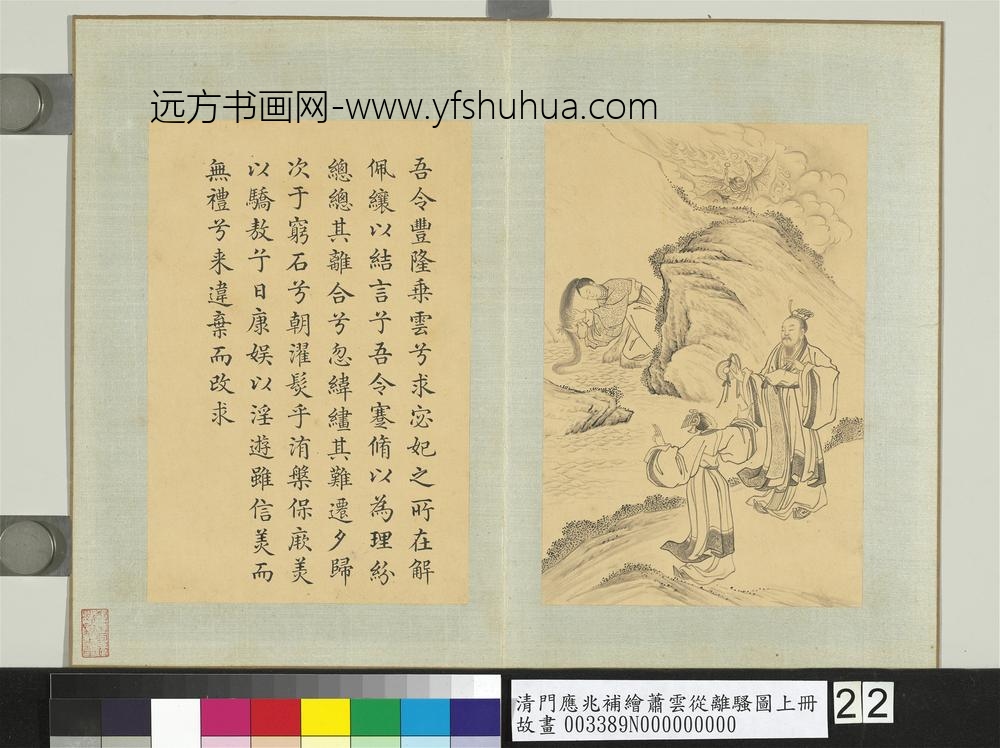 远方书画网-www.yfshuhua.com
吾令豐隆乘雲兮求宓妃之所在解
佩纕以結言兮吾令蹇脩以為理紛
總總其離合兮忽緯繣其難遷夕歸
次于窮石兮朝濯髮乎洧槃保厥美
以驕敖兮日康娛以淫遊雖信美而
無禮兮来違棄而改求
清門應兆補繪蕭雲從離騷圖上冊
故畫 003389N000000000
22